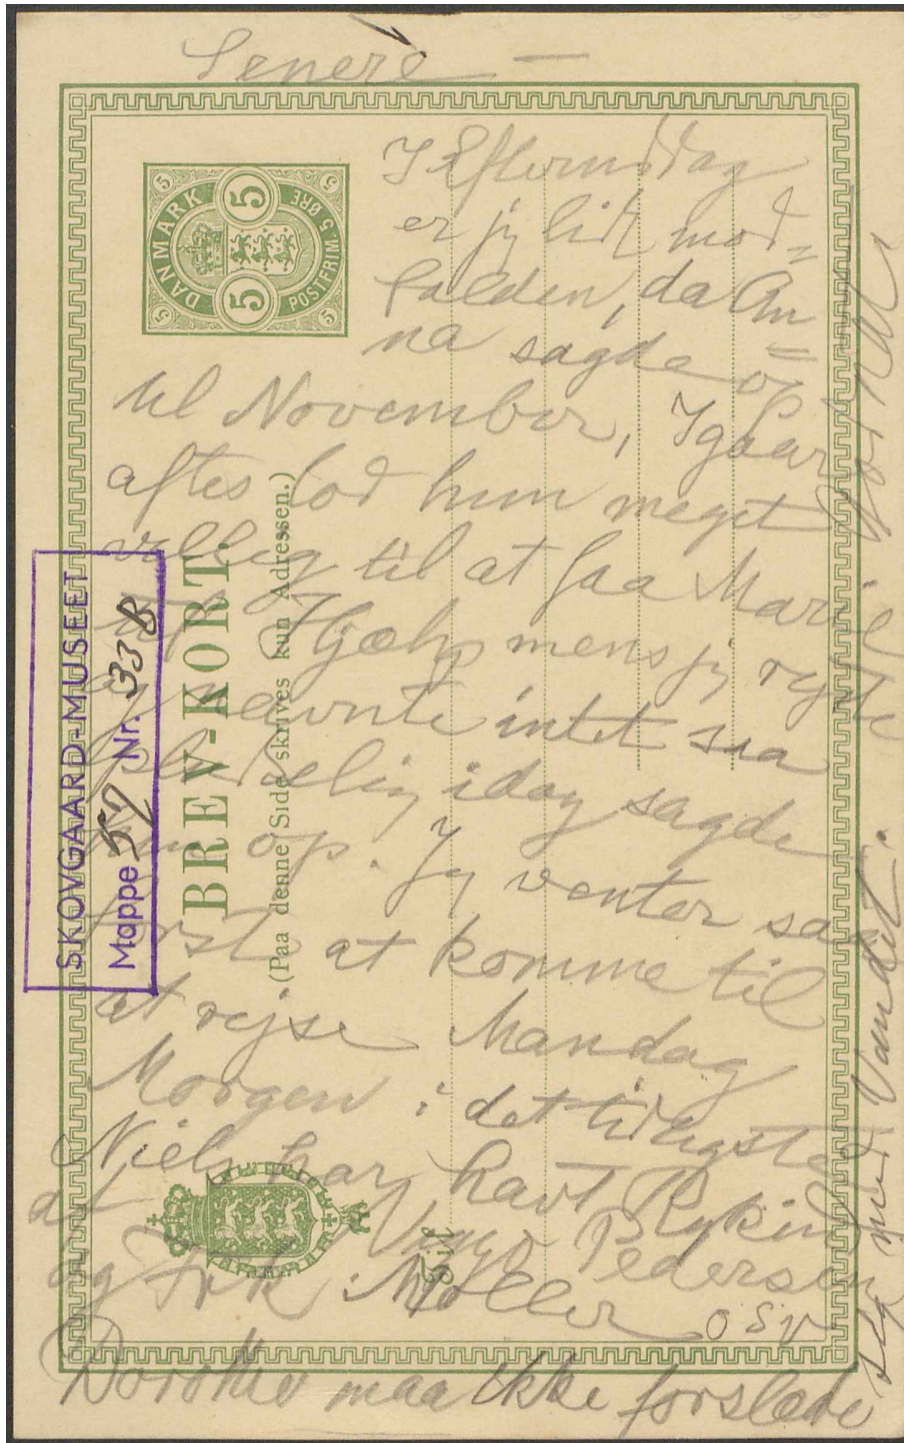 Senere —
I Eftermiddag
er jeg lidt mod=
falden, da An
na sagde op
til November, Igaar
aftes lod hun meget
villig til at faa Marie
til Hjælp mens jeg rejste
og nævnte intet saa
pludselig idag sagde
hun op. Jeg venter saa
først at komme til
at rejse Mandag
Morgen i det tidligste
Niels har havt Rykind
af Viggo Pedersen
og Frk: Møller osv
Dorothe maa ikke forslæbe
sig med Vandet.
DANMARK
POSTFRIM. 5 ØRE
5 5
5 5 5 5
BREV-KORT.
(Paa denne Side skrives kun Adressen.)
Til
SKOVGAARD-MUSEET
Mappe 57 Nr. 33 B